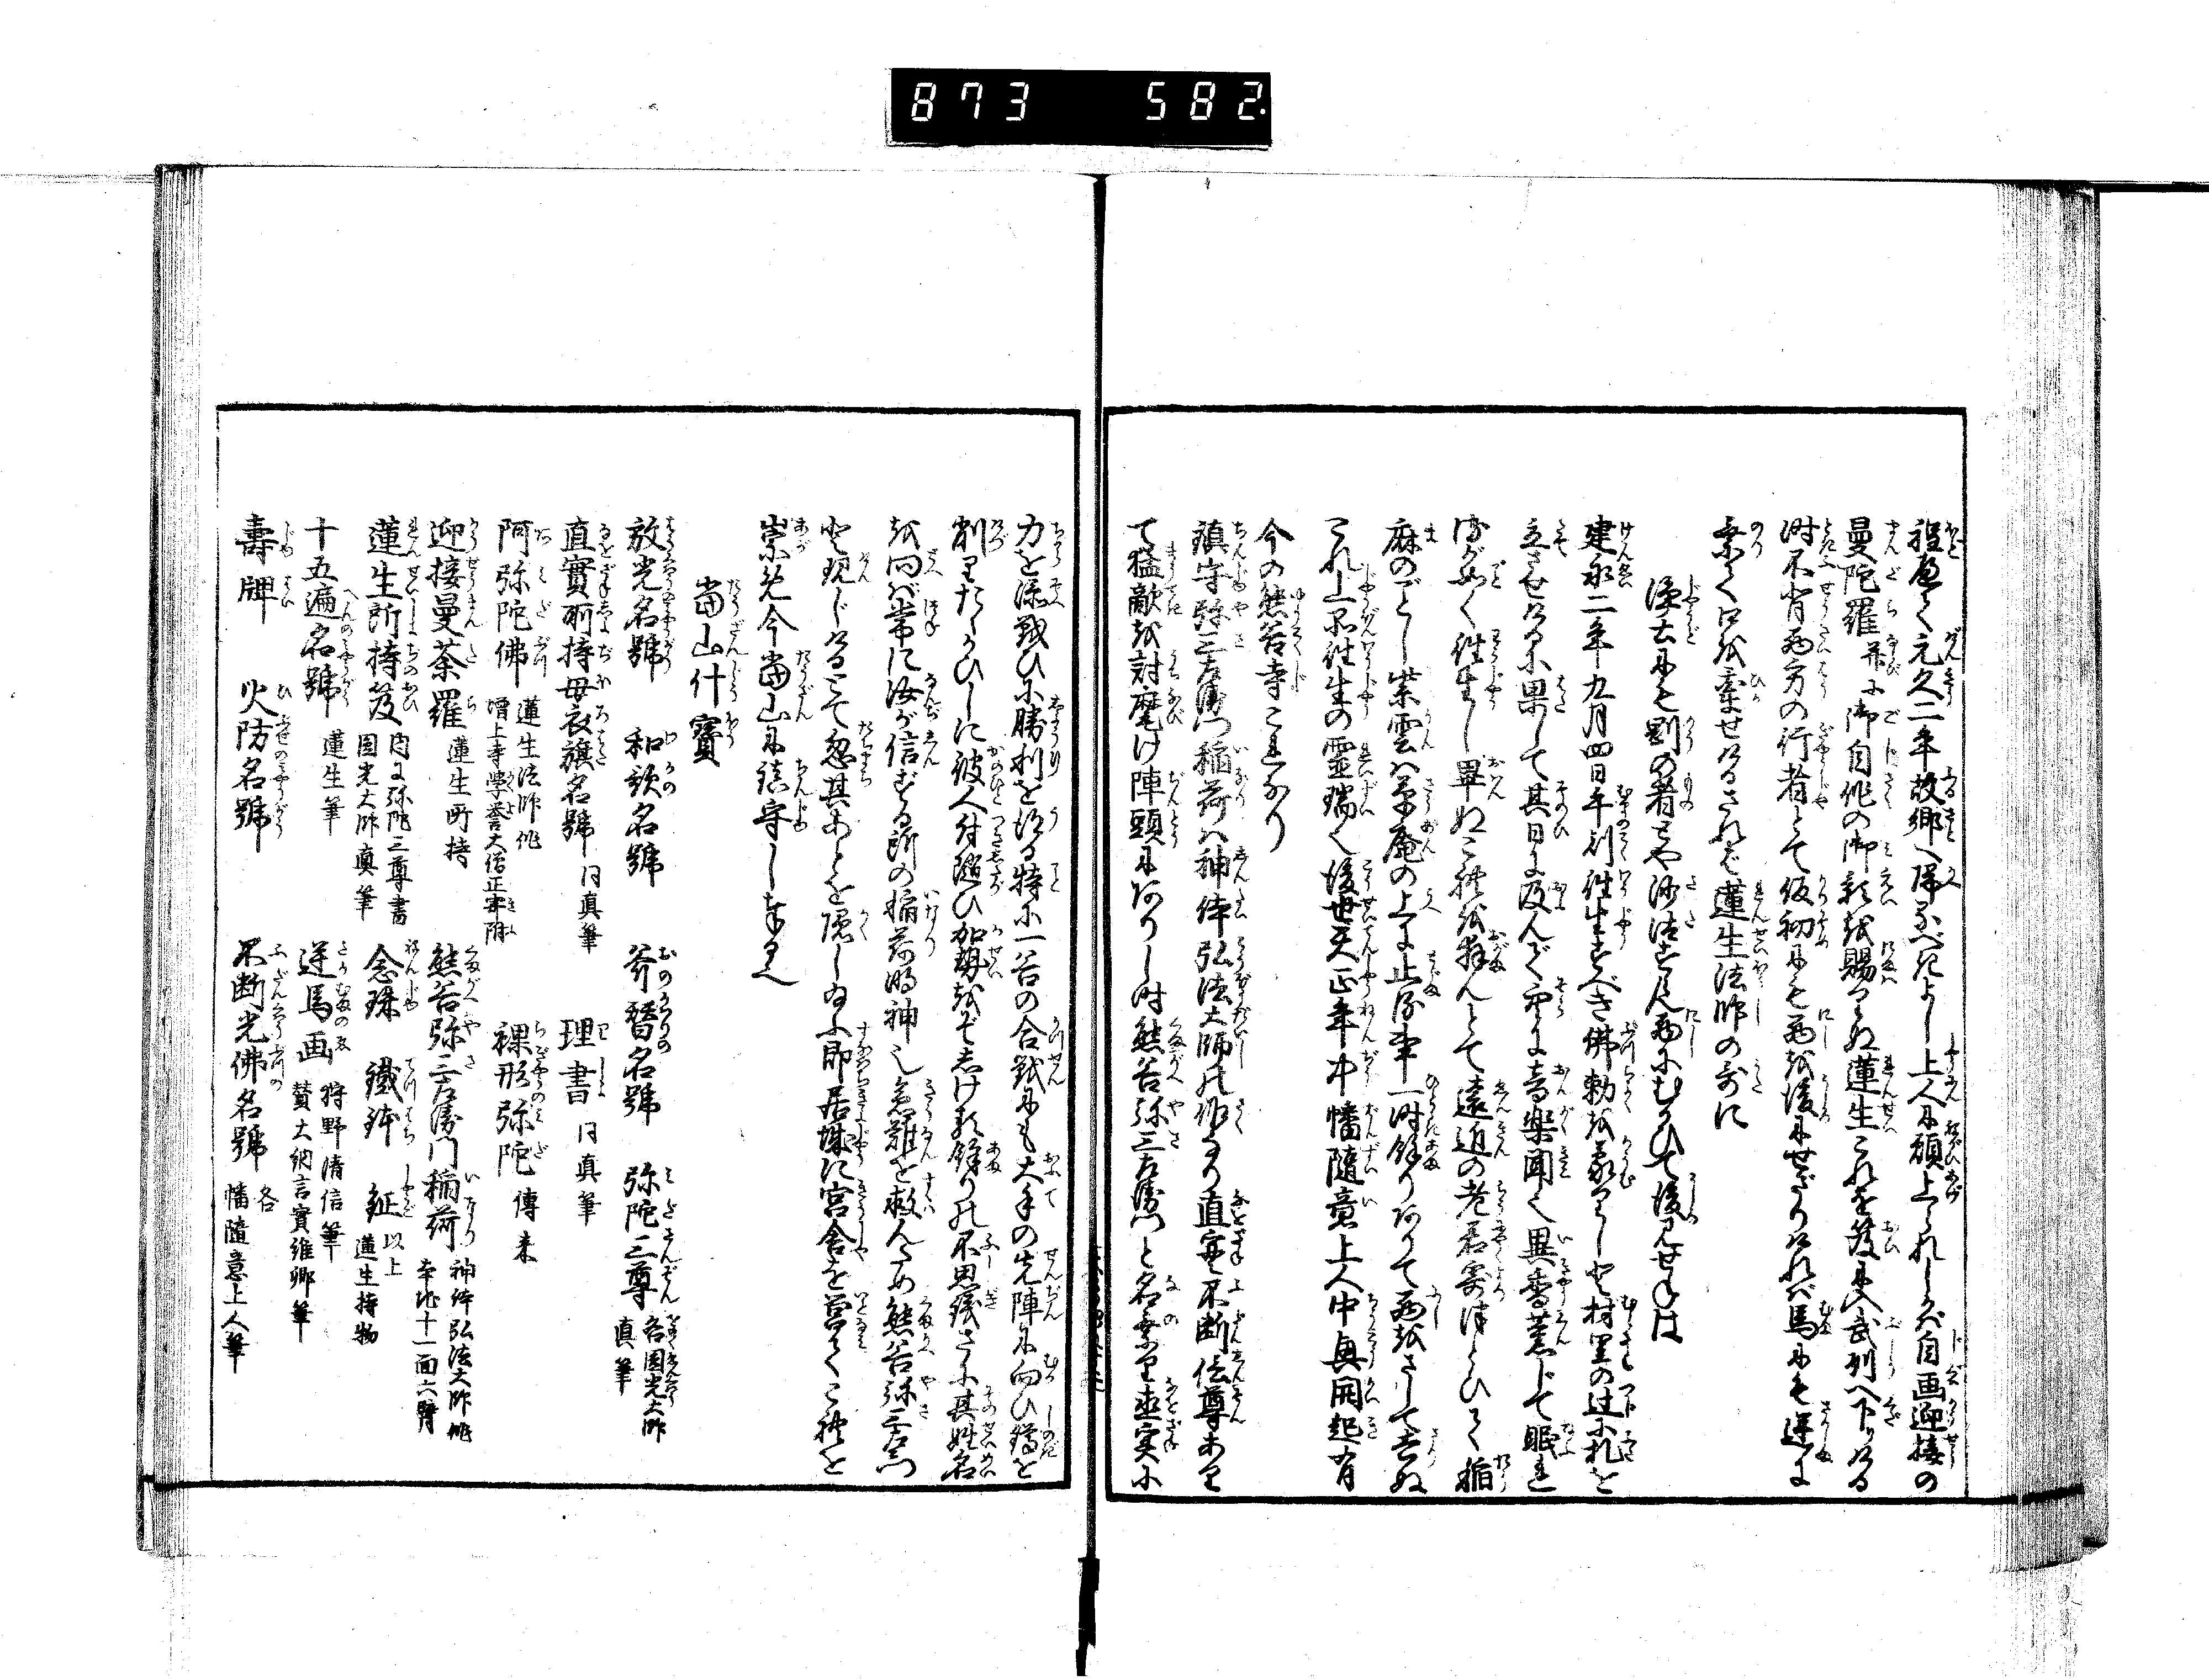 873 582
程歴て元久二年故郷へ帰るべきよし上人に願上られしかバ自画迎接の
曼陀羅并に御自作の御影を賜りぬ蓮生これを笈に入武刕へ下りける
時不背西方の行者とて仮初にも西を後にせざりければ馬にも逆に
乗て口を牽せけるされバ蓮生法師の哥に
浄土にも剛の者とや沙汰すらん西にむかひて後見せねば
建永二年九月四日午刻往生すべき佛勅を蒙りしと村里の辻に札を
立させけるに果して其日に及んで空に音楽聞へ異香薫じて眠る
がごとく往生し畢ぬこれを拝んとて遠近の老若寄津どひて稲
麻のごとし紫雲ハ草庵の上に止る事一時餘りありて西をさして去ぬ
これ上品往生の霊瑞也後世天正年中幡隨意上人中興開起有
今の熊谷寺これなり
鎮守弥三左衛門稲荷ハ神体弘法大師の作なり直実不断信尊ありし
て猛敵を討靡け陣頭にありし時熊谷弥三左衛門と名乗り直実に
力を添戦ひに勝利を得る特に一谷の合戦にも大手の先陣に向ひ鎬を
削りたゝかひしに彼人付隨ひ加勢をぞしけり餘りの不思議さに其姓名
を問バ常に汝が信ずる所の稲荷明神也危難を救んため熊谷弥三左衛門
と現じけるとて忽其あとを隠し給ふ即居城に宮舎を営てこれを
崇め今當山に鎮守しなりへ
當山什寳
放光名號 和歌名號 斧替名號 弥陀三尊 各圓光大師真筆
直實所持母衣旗名號 同真筆 理書 同真筆
阿弥陀佛 蓮生法師作 増上寺學誉大僧正寄附 裸形弥陀 傳来
迎接曼荼羅 蓮生所持 熊谷弥三左衛門稲荷 神体弘法大師作 本地十一面六臂
蓮生所持笈 内に弥陀三尊書 圓光大師真筆 念珠 鐵鉢 鉦 以上蓮生持物
十五遍名號 蓮生筆 逆馬画 狩野清信筆 賛大納言實維卿筆
壽牌 火防名號 不断光佛名號 各幡隨意上人筆